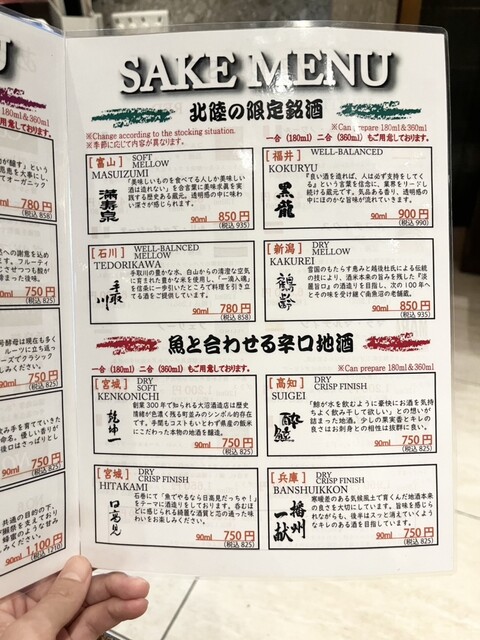 U
SAKE MENU
北陸の限定銘酒
※Change according to the stocking situation.
※季節に応じて内容が異なります。
※Can prepare 180ml&360ml
一合（180ml）二合（360ml）もご用意しております。
[富山] SOFT
MELLOW
MASUIZUMI
満寿泉
「美味しいものを食べてる人しか美味しい
酒は造れない」を合言葉に美味求眞を実践
する歴史ある蔵元。透明感の中に味わ
い深さが感じられます。
90ml 850円
(税込 935)
[福井] WELL-BALANCED
KOKURYU
黒龍
「良い酒を造れば、人は必ず支持をしてく
る」という言葉を信念に、業界をリードし
続ける蔵元です。気品ある香り、透明感の中
にほのかな旨味が流れていきます。
90ml 900円
(税込 990)
[石川] WELL-BALNCED
MELLOW
TEDORIKAWA
手取川
手取川の豊かな水、白山からの清澄な空気
に育まれた豊かな米を使用し、「一滴入魂」
を信条に一歩引いたところで料理を引き立
てる酒をご提供しています。
90ml 780円
(税込 858)
[新潟] DRY
MELLOW
KAKUREI
鶴齢
雪国のもたらす恵みと越後杜氏による伝統
の技により、酒米本来の旨みを残した「淡
麗旨口」の酒造りを目指し、次の100年へ
とその味を受け継ぐ南魚沼の老舗蔵。
90ml 750円
(税込 825)
魚と合わせる辛口地酒
一合（180ml）二合（360ml）もご用意しております。
※Can prepare 180ml&360ml
[宮城] DRY
SOFT
KENKONICHI
乾坤一
創業300年で知られる大沼酒造店は歴史
情緒が色濃く残る町並みのシンボル的存在
です。手間もコストもいとわず県産の飯米
にこだわった本物の地酒を醸造。
90ml 750円
(税込 825)
[高知] DRY
CRISP FINISH
SUIGEI
酔鯨
「鯨が水を飲むように豪快にお酒を気持
ちよく飲み干して欲しい」との想いが
詰まった地酒。少しの果実香とキレの
良さはお刺身との相性は抜群に良い。
90ml 750円
(税込 825)
[宮城] DRY
CRISP FINISH
HITAKAMI
日高見
石巻にて「魚でやるなら日高見だっちゃ！」
をテーマに酒造りをしております。呑むほ
どに感じられる綺麗な酒質と芯の通った味
わいをお楽しみください。
90ml 750円
(税込 825)
[兵庫] DRY
CRISP FINISH
BANSHUIKKON
播州一献
寒暖差のある気候風土で育くんだ地酒本来
の良さを大切にしています。旨味を感じら
れながらも、後半はスッと消えていくよう
なキレのある酒を目指しています。
90ml 750円
(税込 825)
180ml&360ml
用意しております。
780円
(税込 858)
750円
(税込 825)
750円
(税込 825)
750円
(税込 825)
90ml 1,100円